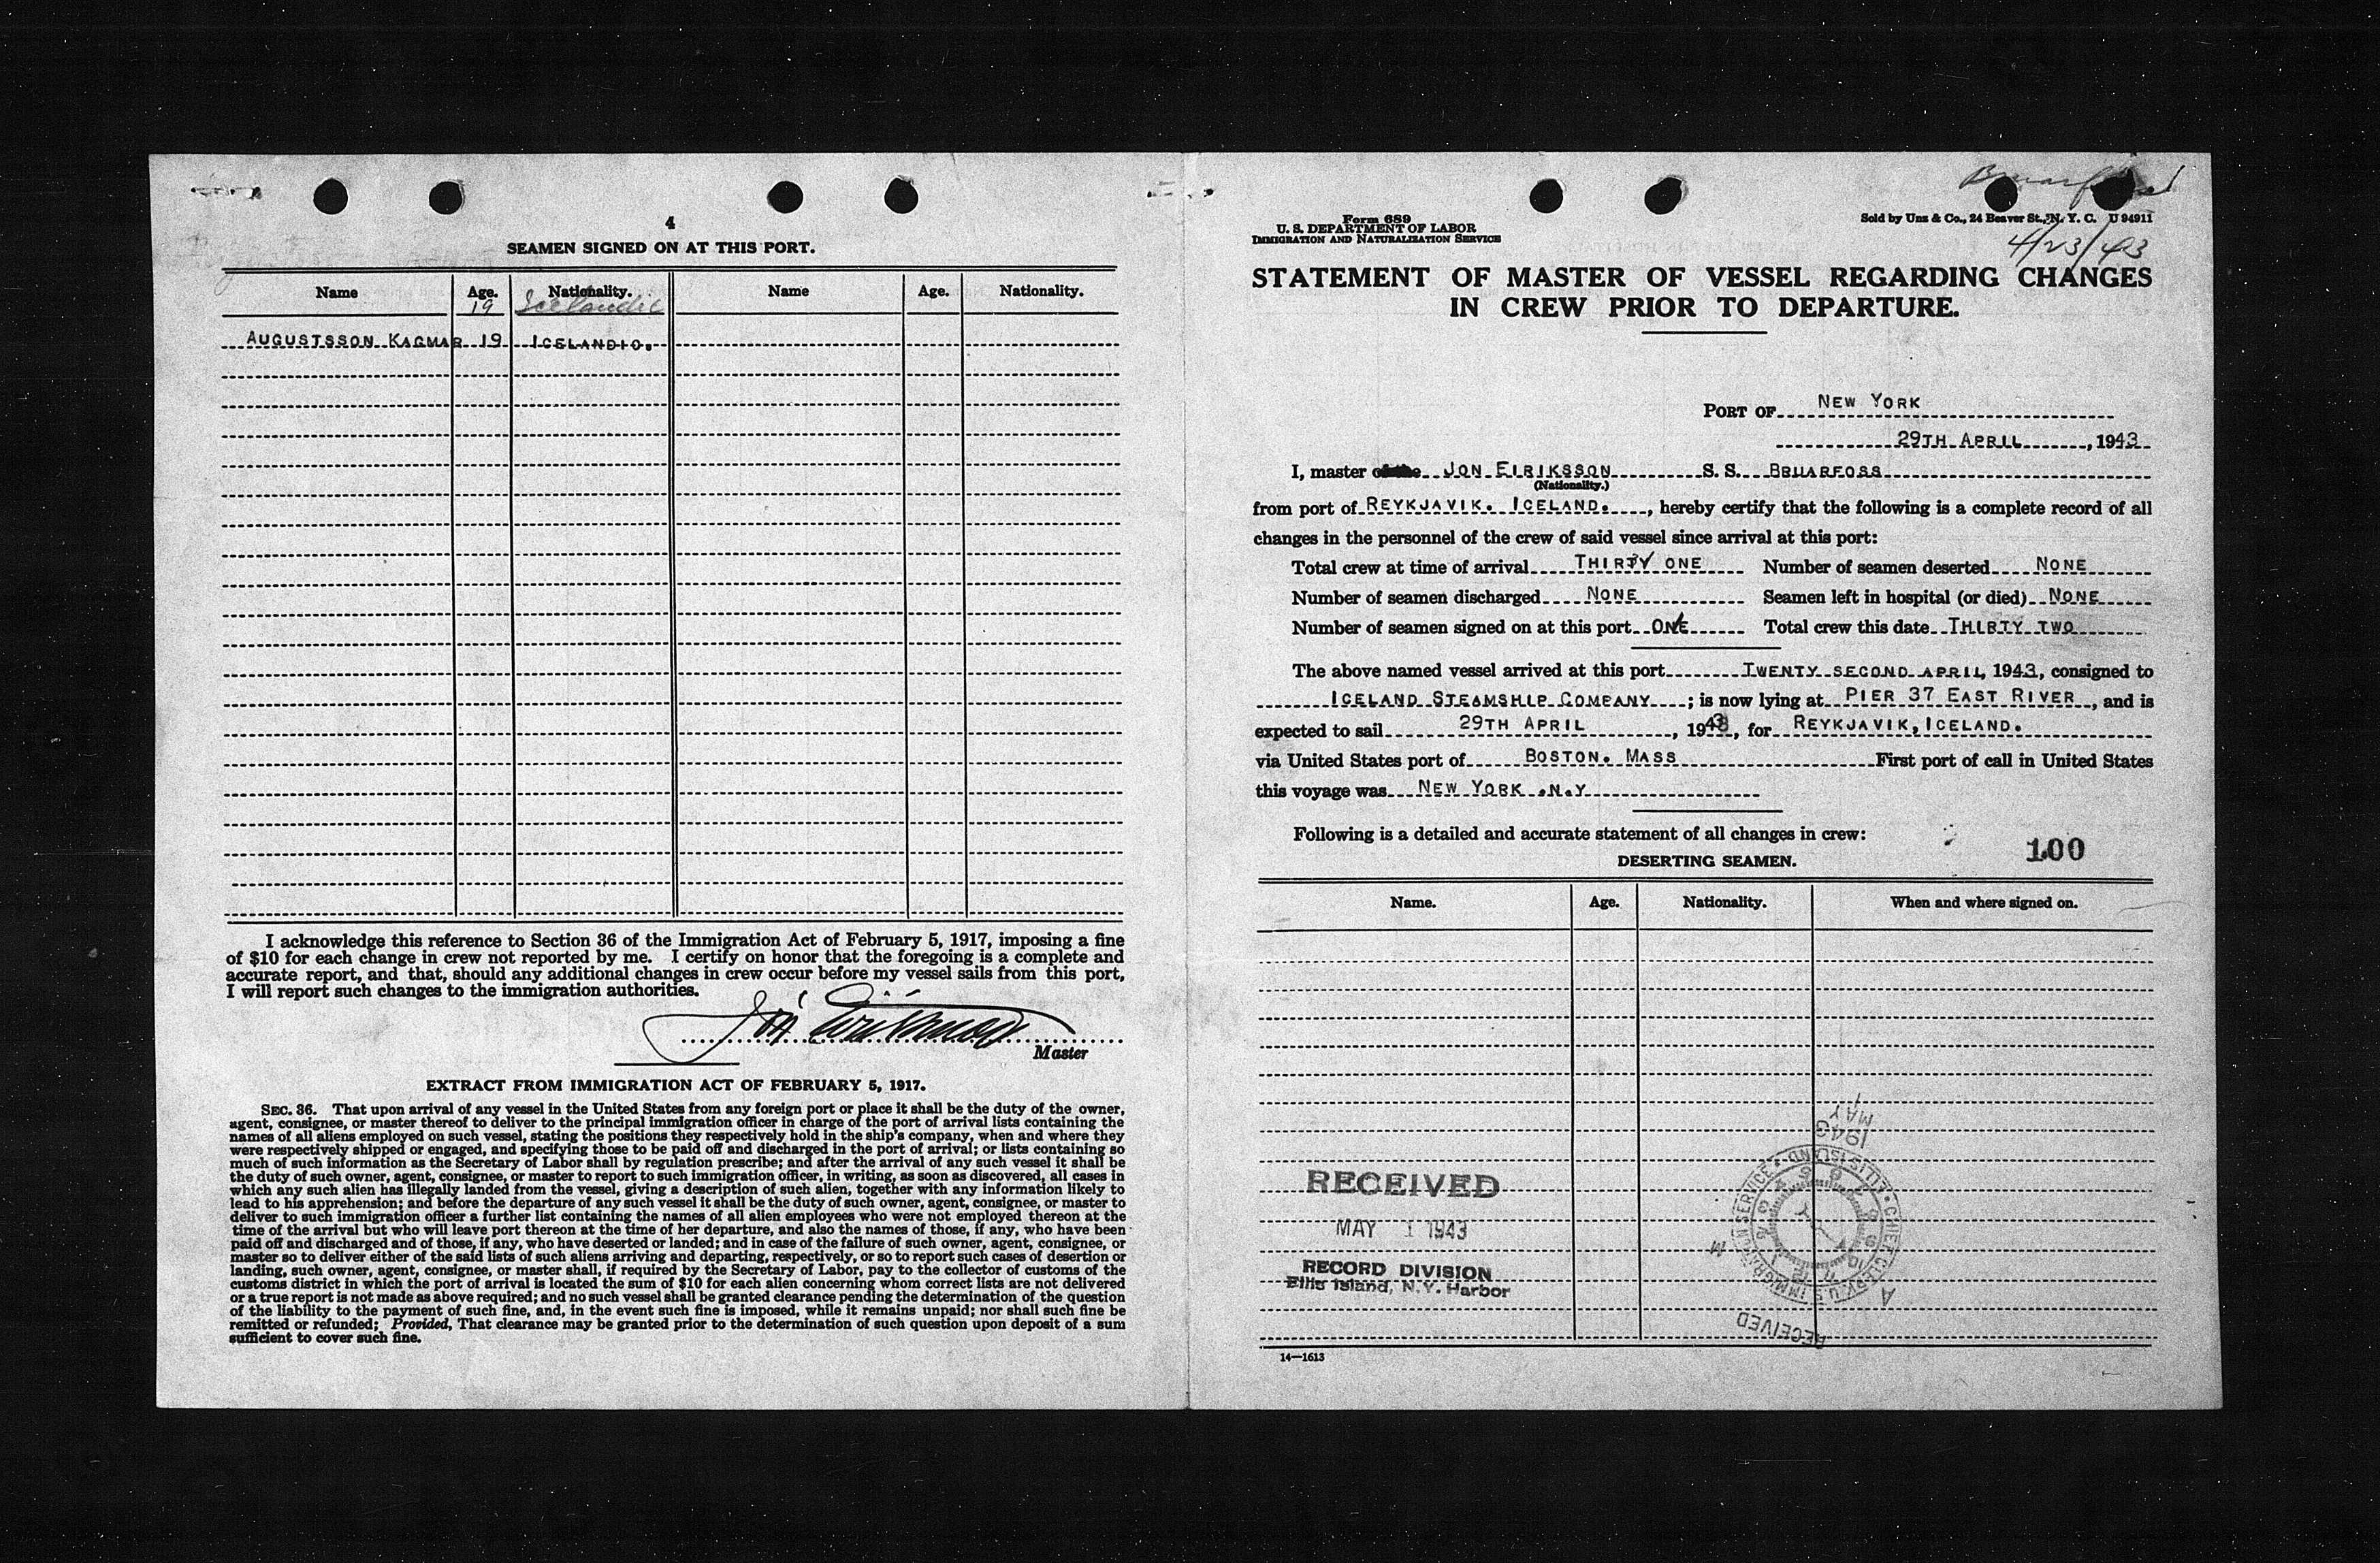 4
SEAMEN SIGNED ON AT THIS PORT.
Name Age. Nationality. Name Age. Nationality.
19 Icelandic
AUGUSTSSON KAGMAR 19 ICELANDIC.
I acknowledge this reference to Section 36 of the Immigration Act of February 5, 1917, imposing a fine
of $10 for each change in crew not reported by me. I certify on honor that the foregoing is a complete and
accurate report, and that, should any additional changes in crew occur before my vessel sails from this port,
I will report such changes to the immigration authorities.
Jón Eiriksson
Master
EXTRACT FROM IMMIGRATION ACT OF FEBRUARY 5, 1917.
SEC. 36. That upon arrival of any vessel in the United States from any foreign port or place it shall be the duty of the owner,
agent, consignee, or master thereof to deliver to the principal immigration officer in charge of the port of arrival lists containing the
names of all aliens employed on such vessel, stating the positions they respectively hold in the ship's company, when and where they
were respectively shipped or engaged, and specifying those to be paid off and discharged in the port of arrival; or lists containing so
much of such information as the Secretary of Labor shall by regulation prescribe; and after the arrival of any such vessel it shall be
the duty of such owner, agent, consignee, or master to report to such immigration officer, in writing, as soon as discovered, all cases in
which any such alien has illegally landed from the vessel, giving a description of such alien, together with any information likely to
lead to his apprehension; and before the departure of any such vessel it shall be the duty of such owner, agent, consignee, or master to
deliver to such immigration officer a further list containing the names of all alien employees who were not employed thereon at the
time of the arrival but who will leave port thereon at the time of her departure, and also the names of those, if any, who have been
paid off and discharged and of those, if any, who have deserted or landed; and in case of the failure of such owner, agent, consignee, or
master so to deliver either of the said lists of such aliens arriving and departing, respectively, or so to report such cases of desertion or
landing, such owner, agent, consignee, or master shall, if required by the Secretary of Labor, pay to the collector of customs of the
customs district in which the port of arrival is located the sum of $10 for each alien concerning whom correct lists are not delivered
or a true report is not made as above required; and no such vessel shall be granted clearance pending the determination of the question
of the liability to the payment of such fine, and, in the event such fine is imposed, while it remains unpaid; nor shall such fine be
remitted or refunded; Provided, That clearance may be granted prior to the determination of such question upon deposit of a sum
sufficient to cover such fine.
Form 689
U. S. DEPARTMENT OF LABOR
IMMIGRATION AND NATURALIZATION SERVICE
Sold by Unz & Co., 24 Beaver St., N. Y. C. U 94911
4/23/43
STATEMENT OF MASTER OF VESSEL REGARDING CHANGES
IN CREW PRIOR TO DEPARTURE.
PORT OF NEW YORK
29TH APRIL, 1943
I, master of the JON EIRIKSSON S. S. BRUARFOSS
(Nationality.)
from port of REYKJAVIK. ICELAND., hereby certify that the following is a complete record of all
changes in the personnel of the crew of said vessel since arrival at this port:
Total crew at time of arrival THIRTY ONE Number of seamen deserted NONE
Number of seamen discharged NONE Seamen left in hospital (or died) NONE
Number of seamen signed on at this port ONE Total crew this date THIRTY TWO
The above named vessel arrived at this port TWENTY SECOND APRIL, 1943, consigned to
ICELAND STEAMSHIP COMPANY; is now lying at PIER 37 EAST RIVER, and is
expected to sail 29TH APRIL, 1943, for REYKJAVIK, ICELAND.
via United States port of BOSTON. MASS First port of call in United States
this voyage was NEW YORK .N.Y
Following is a detailed and accurate statement of all changes in crew:
100
DESERTING SEAMEN.
Name. Age. Nationality. When and where signed on.
RECEIVED
MAY 1 1943
RECORD DIVISION
Ellis Island, N.Y. Harbor
MAY 1
1943
CHIEF CLERK U.S. IMMIGRATION SERVICE • ELLIS ISLAND •
RECEIVED
14—1613